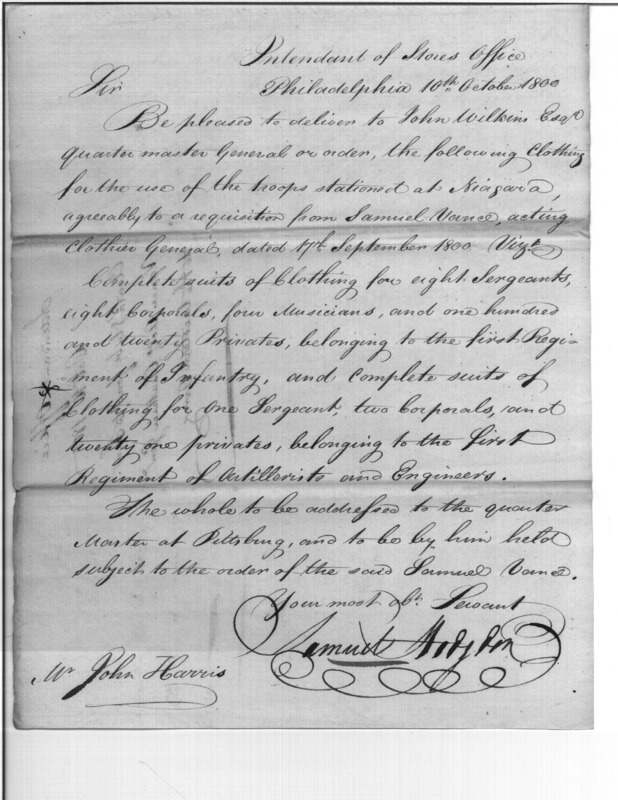 Intendant of Stores Office
Sir Philadelphia 10th October 1800
Be pleased to deliver to John Wilkins Esqr
quarter master General or order, the following Clothing
for the use of the troops stationed at Niagara,
agreably to a requisition from Samuel Vance, acting
Clothier General, dated 17th September 1800 Vizt
Complete suits of Clothing for eight Sergeants,
eight Corporals, four Musicians, and one hundred
and twenty Privates, belonging to the first Regi-
-ment of Infantry, and complete suits of
Clothing for One Sergeant, two Corporals, and
twenty one privates, belonging to the first
Regiment of Artillerists and Engineers.
The whole to be addressed to the quarter
Master at Pittsburg, and to be by him held
subject to the order of the said Samuel Vance.
Your most obt. Servant
Samuel Hodgdon
Mr John Harris